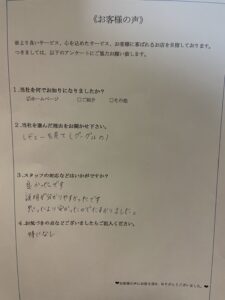 《お客様の声》
より良いサービス、心を込めたサービス、お客様に喜ばれるお店を目指しております。
つきましては、以下のアンケートにご協力お願い致します。
1.当社を何でお知りになりましたか?
☑ホームページ ○ご紹介 ○その他
2.当社を選んだ理由をお聞かせ下さい。
レビューを見て(グーグルの)
3.スタッフの対応などはいかがですか?
良かったです
説明が分かりやすかったです
思ったより安かったのでたすかりました。
4.お気づきの点などございましたらご記入ください。
特になし